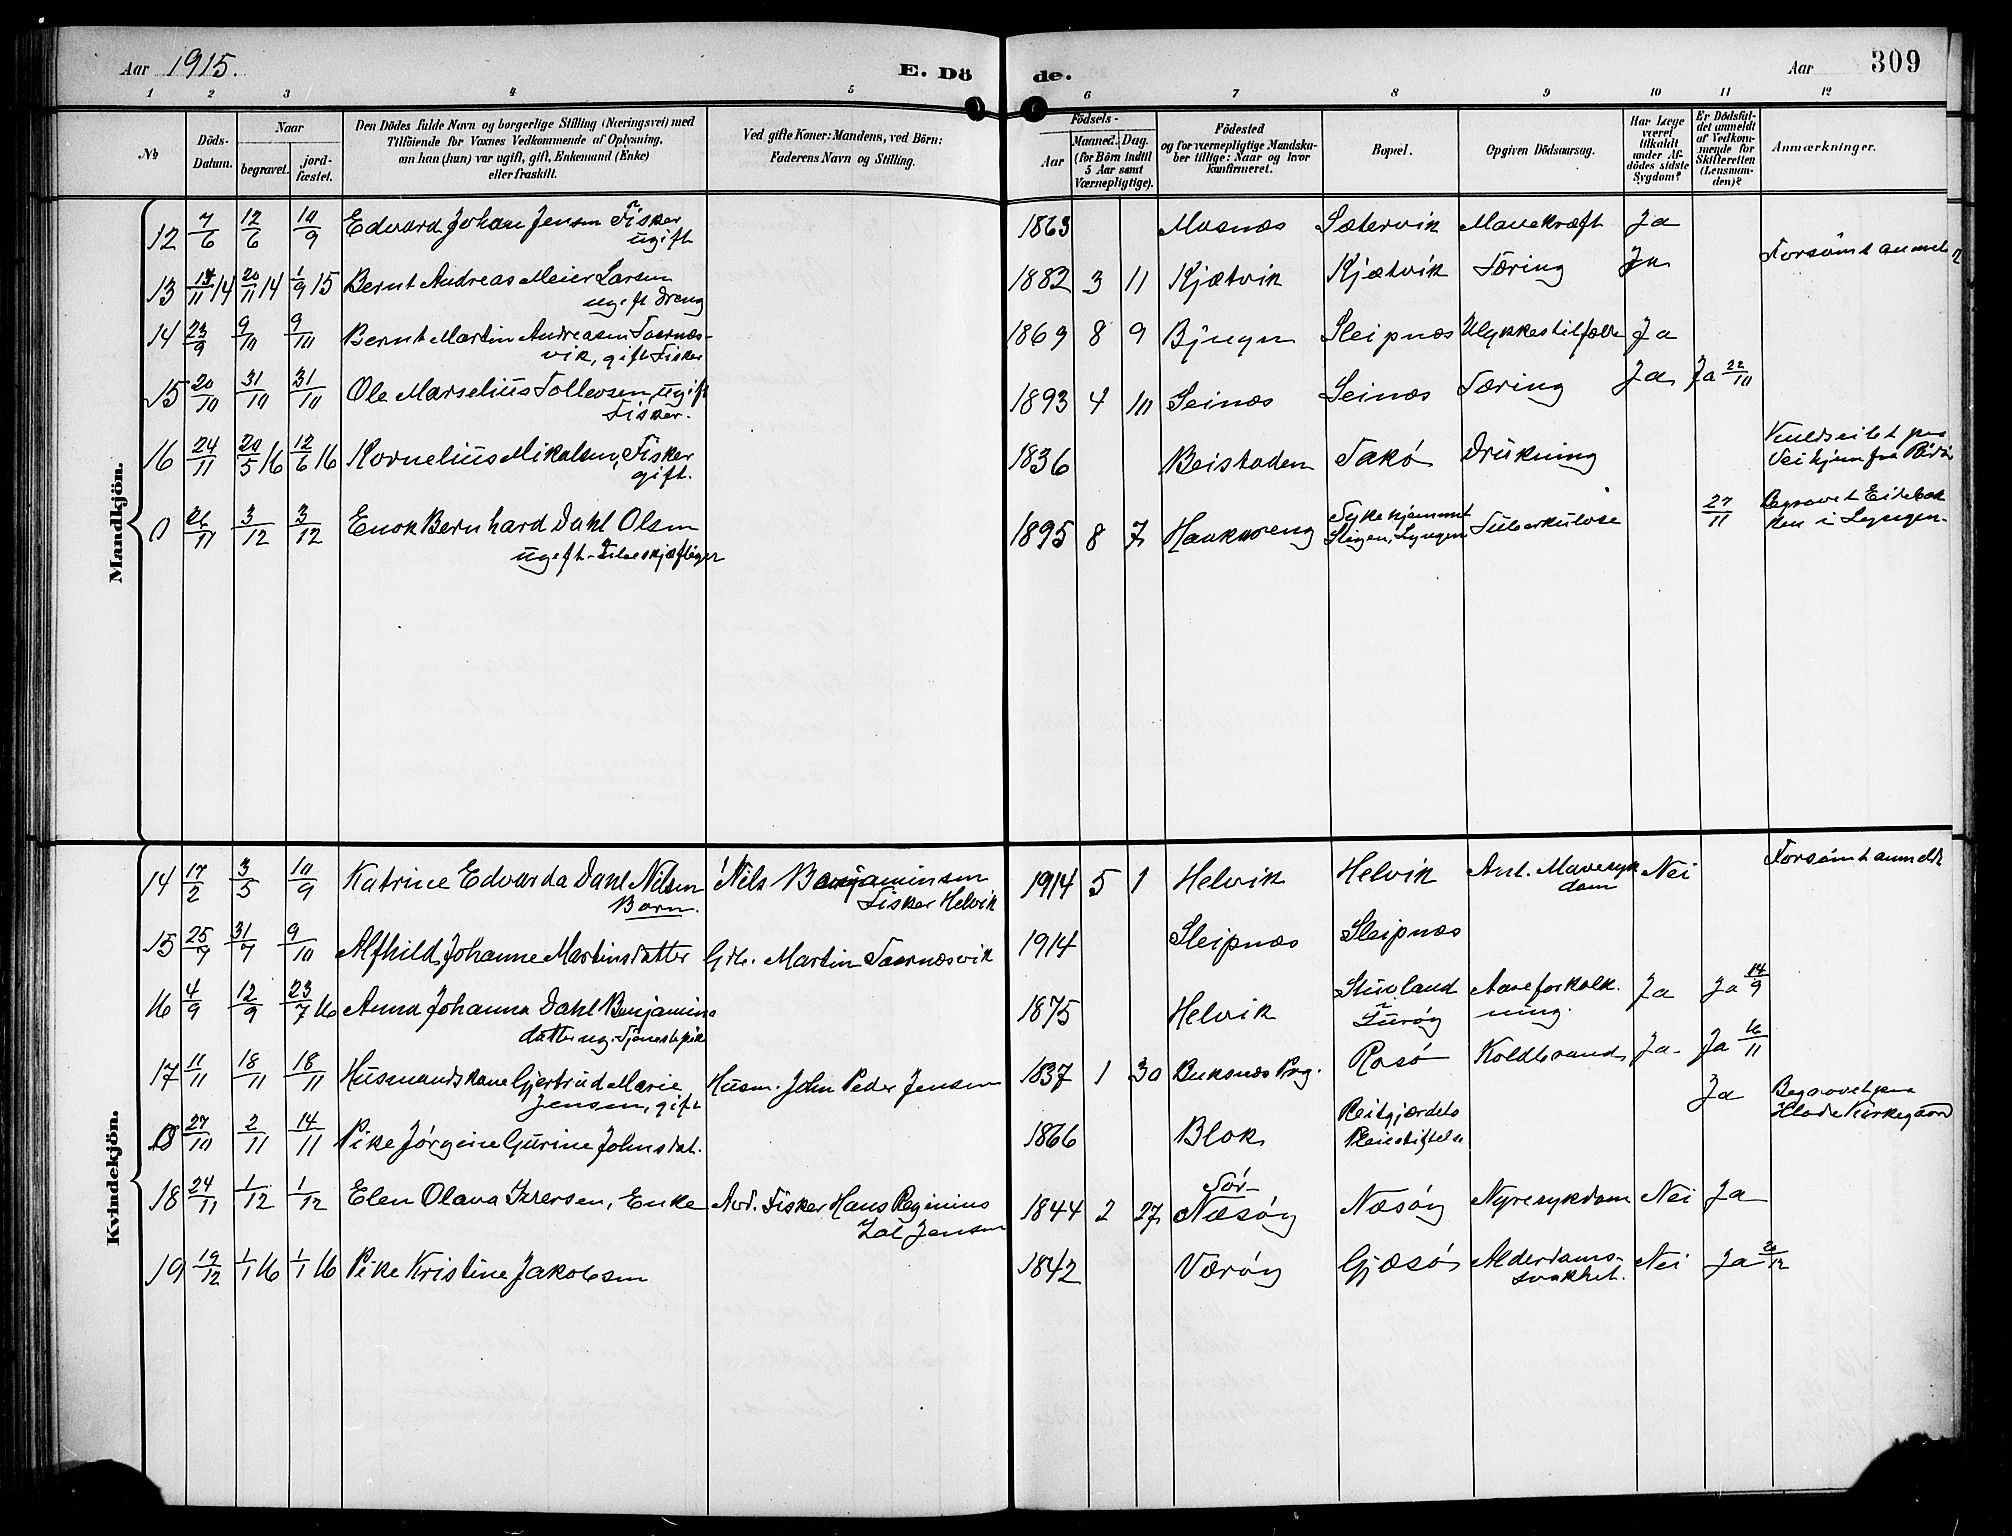 Aar 1915.
E. Dö
de.
Aar
309
1 2 3 4 5 6 7 8 9 10 11 12
No
Döds-
Datum.
Naar
begravet.
jord-
fæstet.
Den Dödes fulde Navn og borgerlige Stilling (Næringsvei) med
Tilföiende for Voxnes Vedkommende af Oplysning,
om han (hun) var ugift, gift, Enkemand (Enke)
eller fraskilt.
Ved gifte Koner: Mandens, ved Börn:
Faderens Navn og Stilling.
Födsels-
Aar
Maaned. Dag.
(for Börn indtil
5 Aar samt
Værnepligtige).
Födested
og for værnepligtige Mandska-
ber tillige: Naar og hvor
konfirmeret.
Bopæl.
Opgiven Dödsaarsag.
Har Læge
været
tilkaldt
under Af-
dödes sidste
Sygdom?
Er Dödsfal-
det anmeldt
af Vedkom-
mende for
Skifteretten
(Lensman-
den)?
Anmærkninger.
Mandkjön.
12 7/6 12/6 19/9 Edvard Johan Jensen Fisker ugift 1863 Mosnæs Sætervik Mavekræft Ja
13 11 14 20/11 14 1/9 15 Bernt Andreas Meier Larsen
ugift Dreng 1882 3 11 Kjætvik Kjætvik Tæring Ja Forsømt anmeldt
14 23/9 9/10 9/10 Bernt Martin Andreasen Taarnæs-
vik, gift Fisker 1869 8 9 Bjugn Sleipnæs Ulykkestilfælde Ja
15 20/10 31/10 31/10 Ole Marselius Tollevsen, ugift
Fisker. 1893 4 10 Seinæs Seinæs Tæring Ja Ja 22/10
16 24/11 20/5 16 12/6 16 Kornelius Mikalsen, Fisker
gift. 1836 Beistaden Sakö Drukning Kuldseilet paa
Vei hjem fra
0 26/11 3/12 3/12 Enok Bernhard Dahl Olsen
ugift 1895 8 7 Haukoreng Sykehjemmet
Lyngen Tuberkulose 27/11 Begravet
i Lyngen.
Kvindekjön.
14 17/2 3/5 19/9 Katrine Edvarda Dahl Nilsen
Barn. Nils Benjaminsen
Fisker Helvik 1914 5 1 Helvik Helvik Ant. Mavesyk
dom Nei Forsømt anmeldt
15 25/7 31/7 9/10 Alfhild Johanne Martinsdatter Grb. Martin Taarnæsvik 1914 Sleipnæs Sleipnæs
16 4/9 12/9 23/7 16 Anna Johanna Dahl Benjamins
datter ug. Tjenestepike 1875 Helvik Stuvland
Lurøy Aareforkalk-
ning. Ja Ja 14/9
17 11/11 18/11 18/11 Husmandskone Gjertrud Marie
Jensen, gift Husm. John Peder Jensen 1837 1 30 Buksnæs Prg. Rosø Koldbrand Ja Ja 16/11
0 27/10 2/11 14/11 Pike Jørgine Gurine Johnsdat. 1866 Blok Reitgjærdets
Pleiestiftelse Ja Begravet paa
Hlade Kirkegaard
18 24/11 1/12 1/12 Elen Olava Iversen, Enke Avd. Fisker Hans Reginius
Zal Jensen 1844 2 27 Sör-
Næsöy Næsöy Nyresykdom Nei Ja
19 19/12 1/1 16 1/1 16 Pike Kristine Jakobsen 1842 Værøy Gjæsö Alderdoms-
svakhet. Nei Ja 20/12